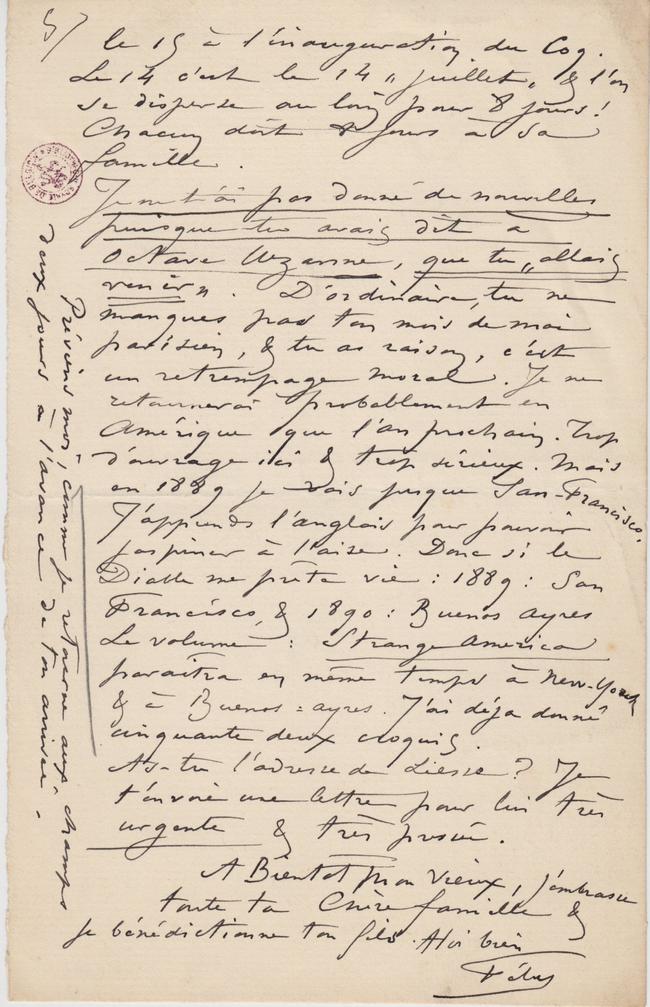 5/
le 15 à l'inauguration du Coq.
Le 14 c'est le 14 „ juillet „ & l'on
se disperse au loin pour 8 jours!
Chacun doit 8 jours à sa
famille.
Je ne t'ai pas donné de nouvelles
puisque tu avais dit à
Octave Uzanne, que tu „ allais
venir ». D'ordinaire, tu ne
manques pas ton mois de mai
parisien, & tu as raison, c'est
un retrempage moral. Je ne
retournerai probablement en
Amérique que l'an prochain. Trop
d'ouvrage ici & trop sérieux. Mais
en 1889 je vais jusque San-Francisco.
J'apprends l'anglais pour pouvoir
jaspiner à l'aise. Donc si le
Diable me prête vie : 1889 : San
Francisco, & 1890 : Buenos ayres
Le volume : Strange America
paraitra en même temps à New-York
& à Buenos-ayres. J'ai déja donné
cinquante deux croquis.
As-tu l'adresse de Liesse? Je
t'envoie une lettre pour lui très
urgente & très pressée.
A Bientot mon Vieux, j'embrasse
toute ta Chère famille &
je bénédictionne ton fils. A toi bien
Préviens moi, comme je retourne aux champs
deux jours à l'avance de ton arrivée.